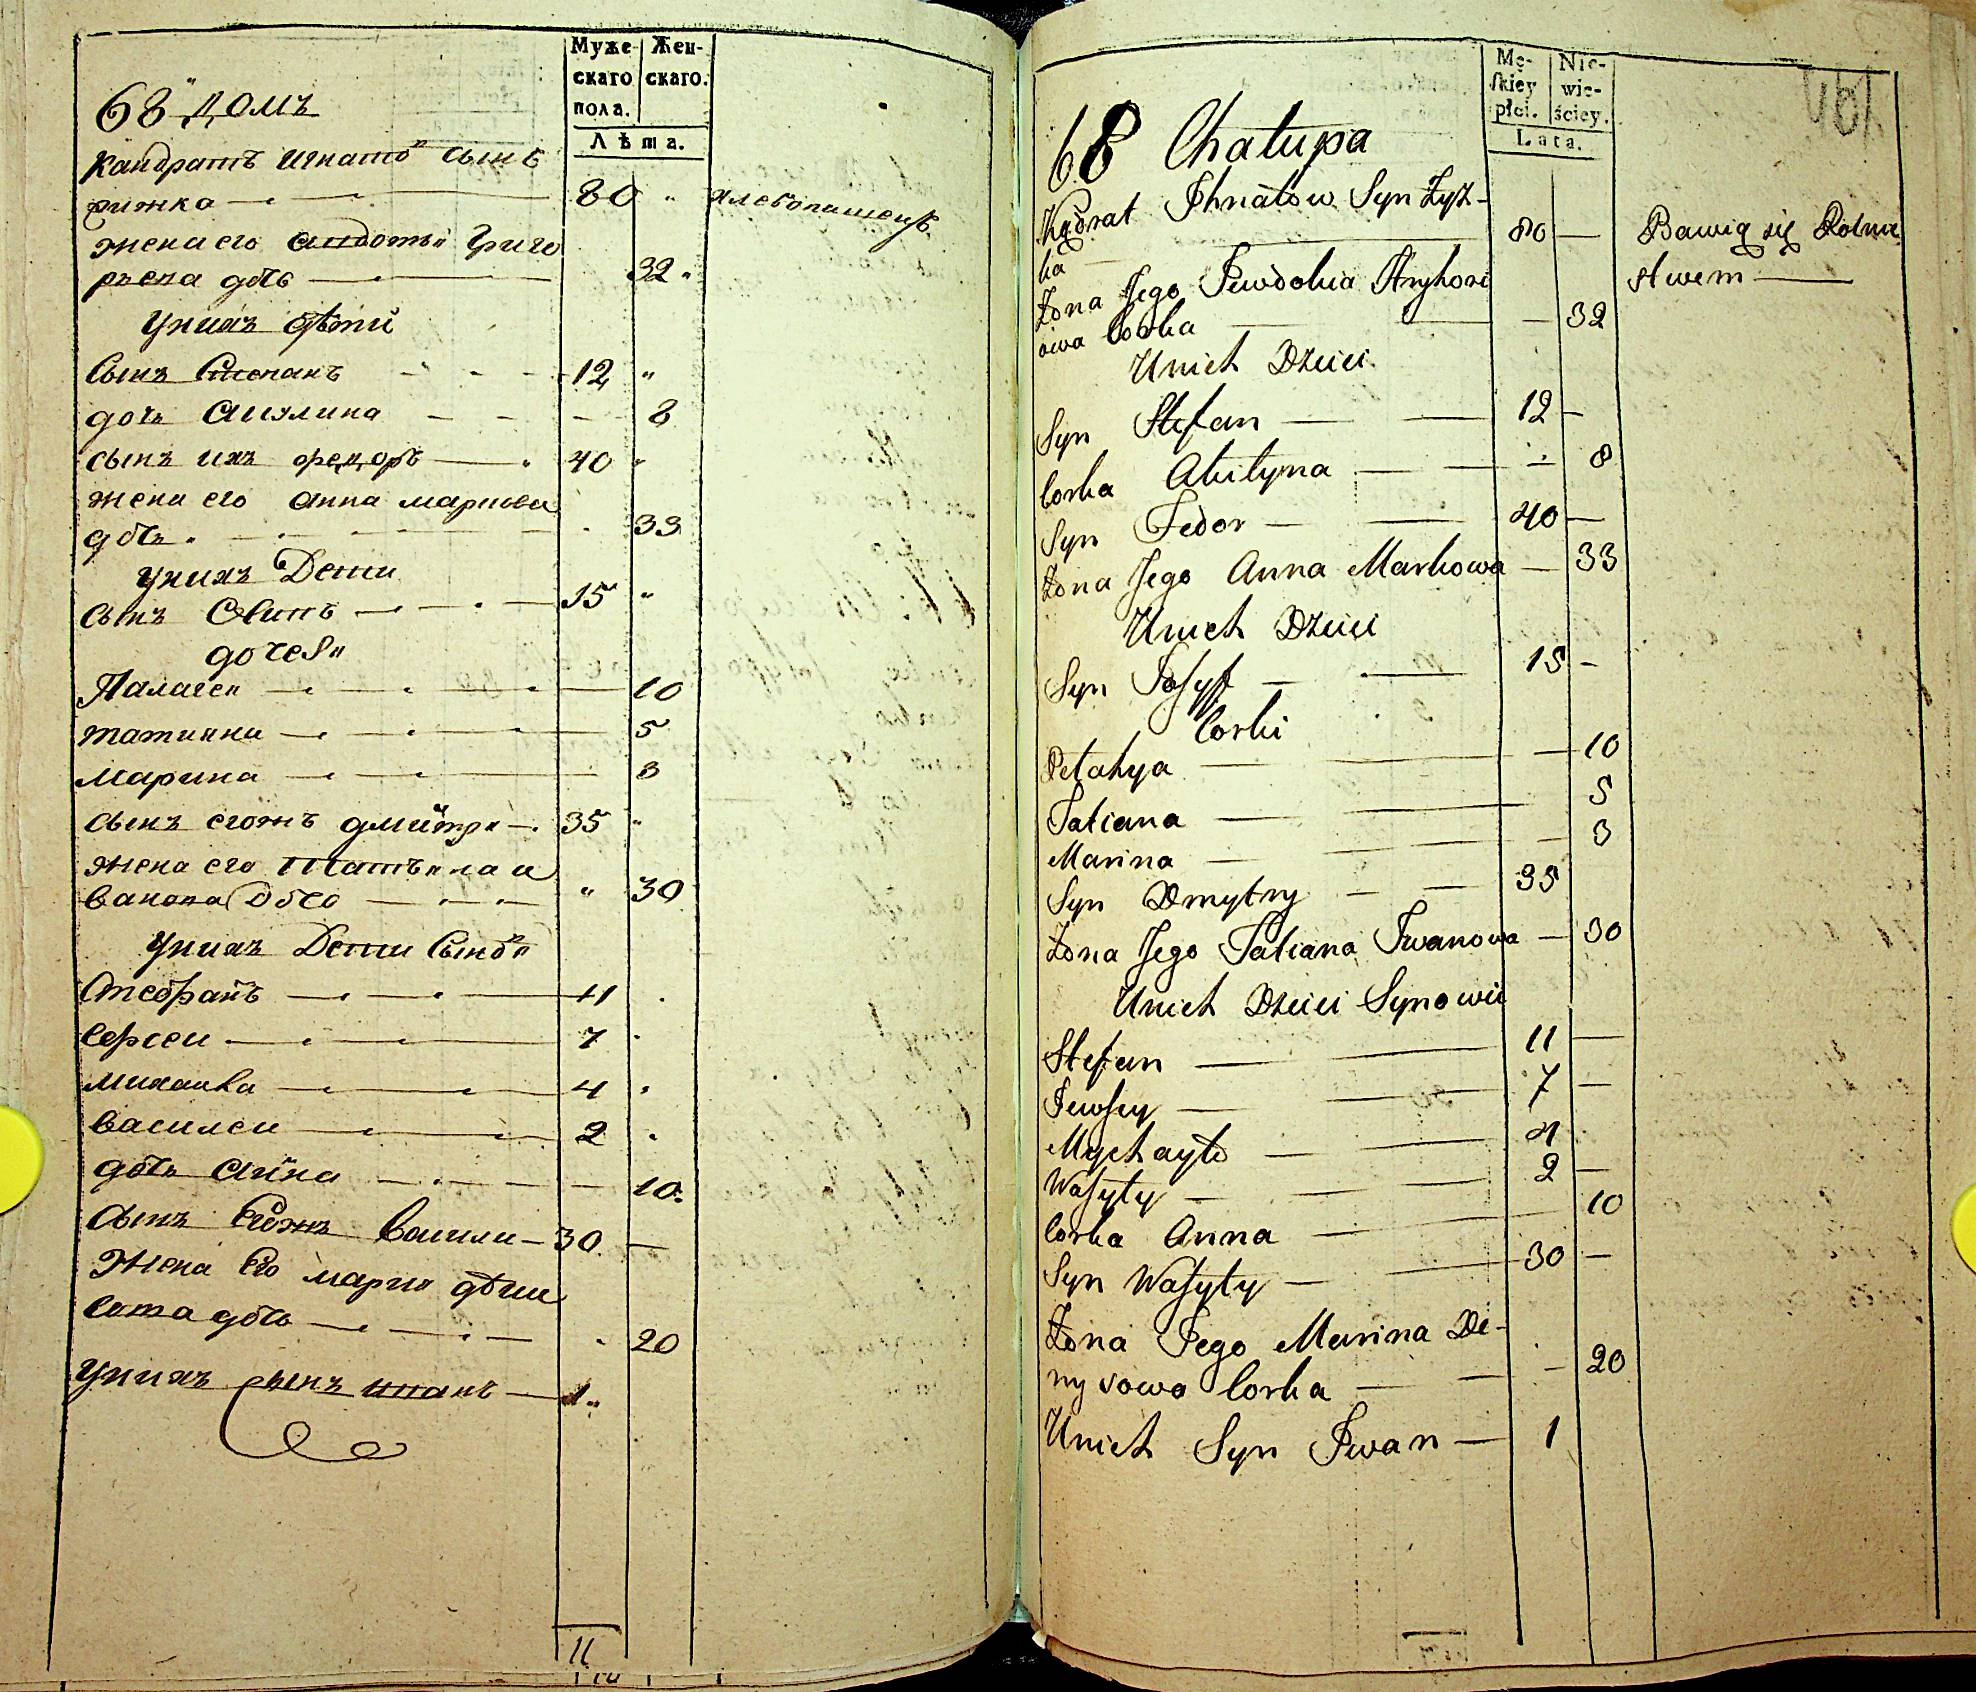 Муже-
скаго
пола.
Жен-
скаго.
Лѣта.
68 домъ
Кандратъ Игнатов сынъ
рижка 80 " хлебопашець
жена его Авдотья Григо
рьева дочь 32 "
У них дѣти
Сынъ Степанъ 12 "
дочь Акилина 8
сынъ их Федоръ 40 "
жена его Анна Маркова
дочь 33
У нихъ Дети
Сынъ Осипъ 15 "
дочери
Палагея 10
Татияна 5
Марина 3
Сынъ егожъ Дмитри 35 "
Жена его Татьяна И
ванова Дочь " 30
У нихъ Дети Сыновя
Стефанъ 11
Евсеи 7
Михаила 4
Василеи 2
дочь Анна 10
Сынъ Егожъ Васили 30
Жена Его Мария Дени
сова дочь 20
У нихъ сынъ Иванъ 1
11
Mę-
skiey
płci.
Nie-
wie-
ściey.
Lata.
68 Chałupa
Kądrat Ihnatow Syn Ryż-
ka 80 Bawią się Rolni
ctwem
Żona Jego Jewdokia Hryhori
owa Corka 32
U nich Dzieci
Syn Stefan 12
Corka Akilyna 8
Syn Fedor 40
Żona Jego Anna Markowa 33
U nich Dzieci
Syn Josyf 15
Corki
Pelahya 10
Tatiana 5
Marina 3
Syn Dmytry 35
Żona Jego Tatiana Iwanowa 30
U nich Dzieci Synowie
Stefan 11
Jewsey 7
Mychayło 4
Wasyly 2
Corka Anna 10
Syn Wasyly 30
Żona Jego Marina De-
nysowa Corka 20
U nich Syn Iwan 1